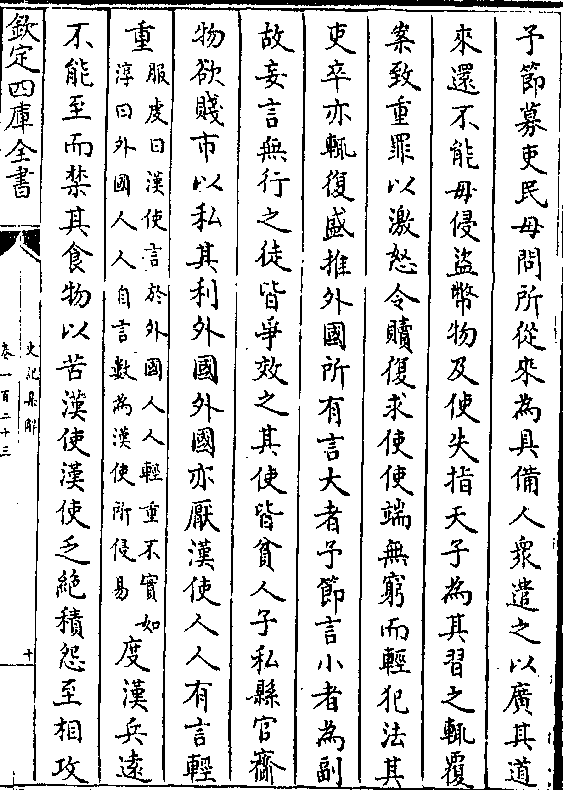 予節募吏民毋問所從來為具備人衆遣之以廣其道
來還不能毋侵盜幣物及使失指天子為其習之輒覆
案致重罪以激怒令贖復求使使端無窮而輕犯法其
吏卒亦輒復盛推外國所有言大者予節言小者為副
故妄言無行之徒皆爭效之其使皆貧人子私縣官齎
物欲賤市以私其利外國外國亦厭漢使人人有言輕
重服虔曰漢使言於外國人人輕重不實如淳曰外國人人自言數為漢使所侵易度漢兵遠
不能至而禁其食物以苦漢使漢使乏絶積怨至相攻
欽定四庫全書
史記集解
卷一百二十三
十